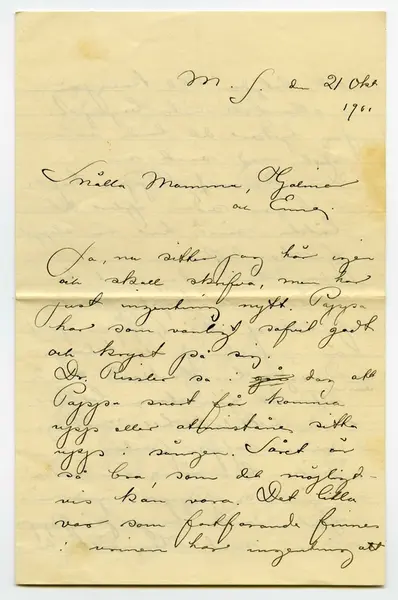 M. S. den 21 Okt.
1901
Snälla Mamma, Hjalmar
och Emmy.
Ja, nu sitter jag här igen
och skall skrifva, men har
just ingenting nytt. Pappa
har som vanligt sofvit godt
och kryat på sig.
Dr. Rissler sa i går dag att
Pappa snart får komma
upp eller åtminstone sitta
upp i sängen. Såret är
så bra, som det möjligt-
vis kan vara. Det lilla
var som fortfarande finnes
i urinen har ingenting att